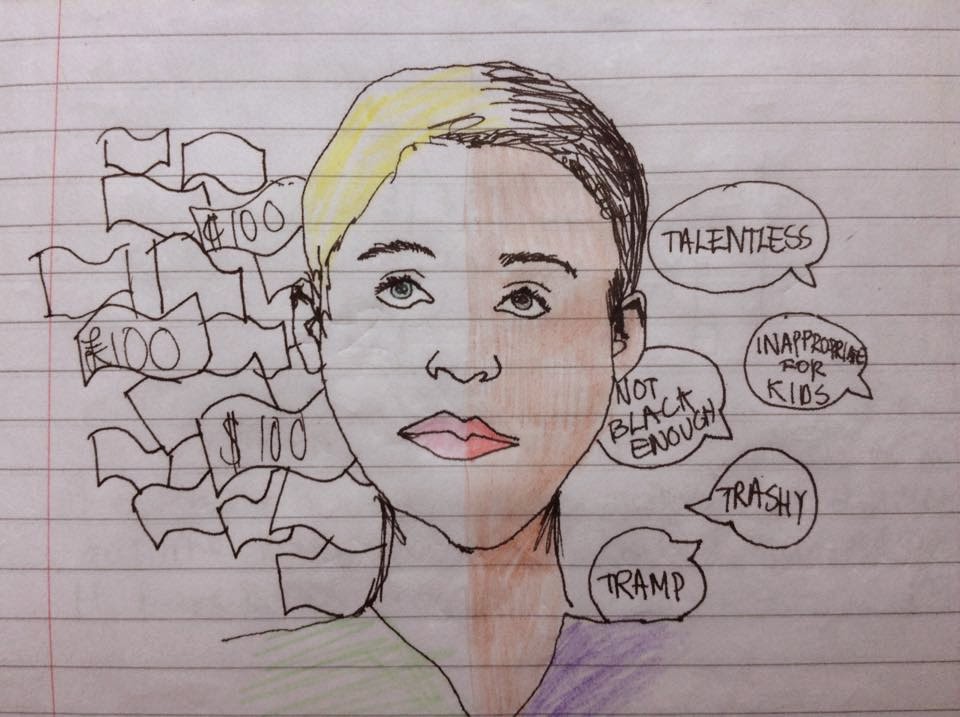 $100
£100
$100
TALENTLESS
INAPPROPRIATE
FOR
KIDS
NOT
BLACK
ENOUGH
TRASHY
TRAMP